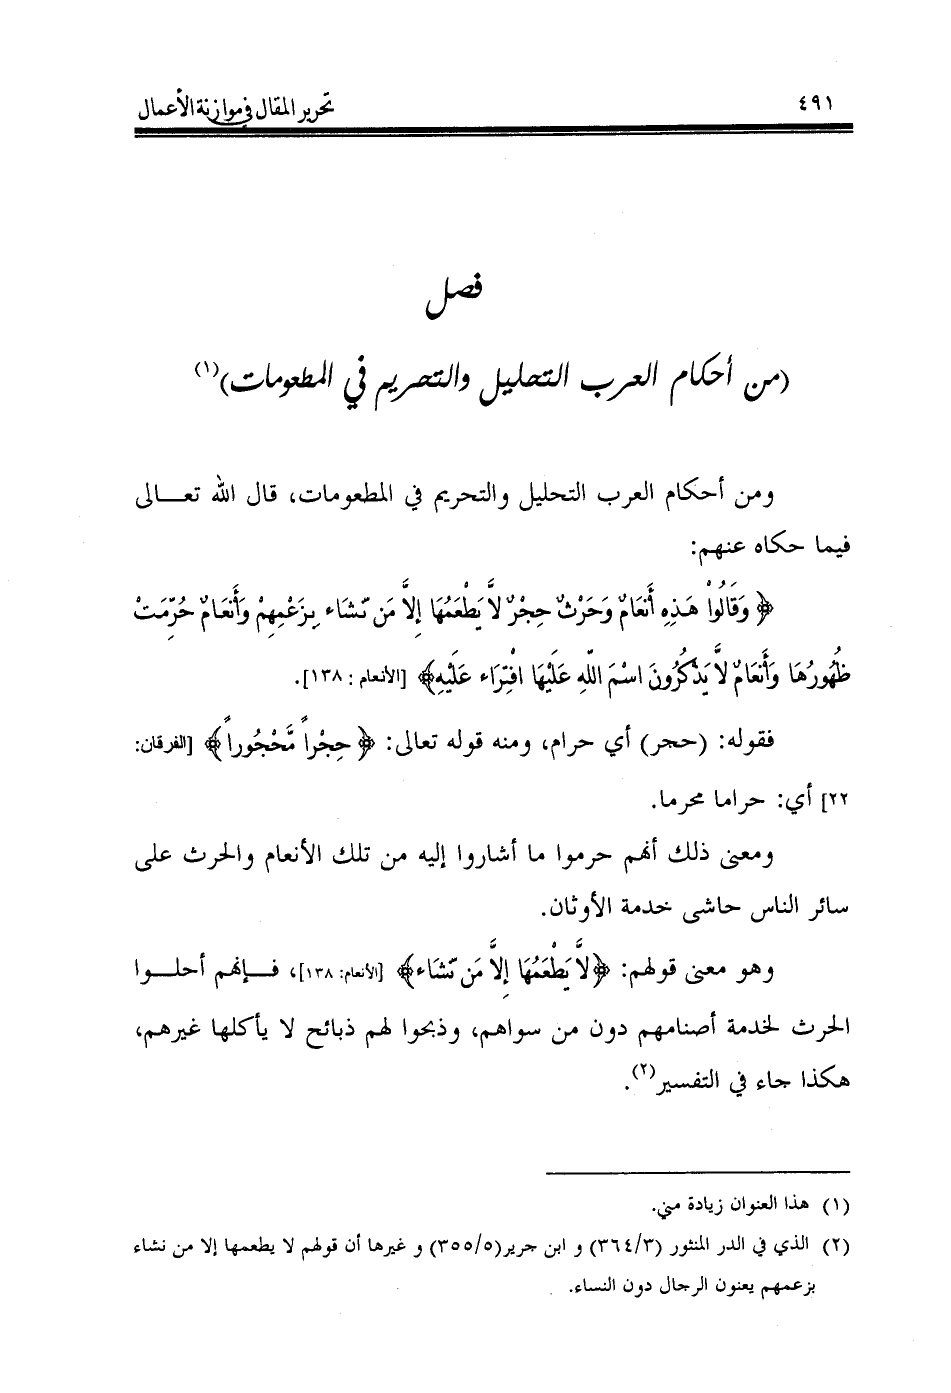 ٤٩١
تحرير المقال في موازنة الأعمال
فصل
(من أحكام العرب التحليل والتحريم في المطعومات)(١)
ومن أحكام العرب التحليل والتحريم في المطعومات، قال الله تعـــالى
فيما حكاه عنهم:
﴿وَقَالُواْ هَذِهِ أَنْعَامٌ وَحَرْثٌ حِجْرٌ لاَّ يَطْعَمُهَا إِلاَّ مَن نّشَاء بِزَعْمِهِمْ وَأَنْعَامٌ حُرِّمَتْ
ظُهُورُهَا وَأَنْعَامٌ لاَّ يَذْكُرُونَ اسْمَ اللّهِ عَلَيْهَا افْتِرَاء عَلَيْهِ﴾ [الأنعام : ١٣٨].
فقوله: (حجر) أي حرام، ومنه قوله تعالى: ﴿حِجْراً مَّحْجُوراً﴾ [الفرقان:
٢٢] أي: حراما محرما.
ومعنى ذلك أنهم حرموا ما أشاروا إليه من تلك الأنعام والحرث على
سائر الناس حاشى خدمة الأوثان.
وهو معنى قولهم: ﴿لاَّ يَطْعَمُهَا إِلاَّ مَن نّشَاء﴾ [الأنعام: ١٣٨]، فـــإنهم أحلـــوا
الحرث لخدمة أصنامهم دون من سواهم، وذبحوا لهم ذبائح لا يأكلها غيرهم،
هكذا جاء في التفسير(٢).
(١) هذا العنوان زيادة مني.
(٢) الذي في الدر المنثور (٣٦٤/٣) و ابن جرير(٣٥٥/٥) و غيرها أن قولهم لا يطعمها إلا من نشاء
بزعمهم يعنون الرجال دون النساء.